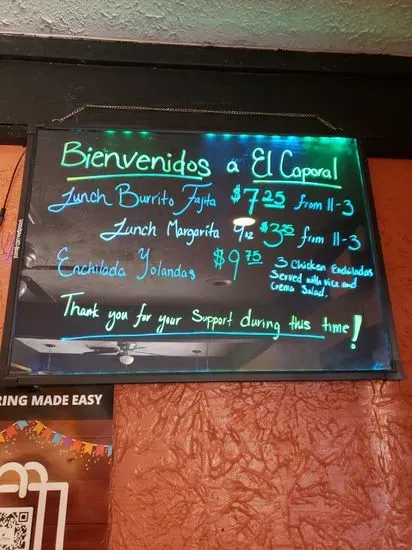 Bienvenidos a El Caporal
Lunch Burrito Fajita $7.25 from 11-3
Lunch Margarita 9oz $3.25 from 11-3
Enchilada Yolandas $9.75
3 Chicken Enchiladas
Served with rice and
Crema Salad.
Thank you for your Support during this time!
RING MADE EASY